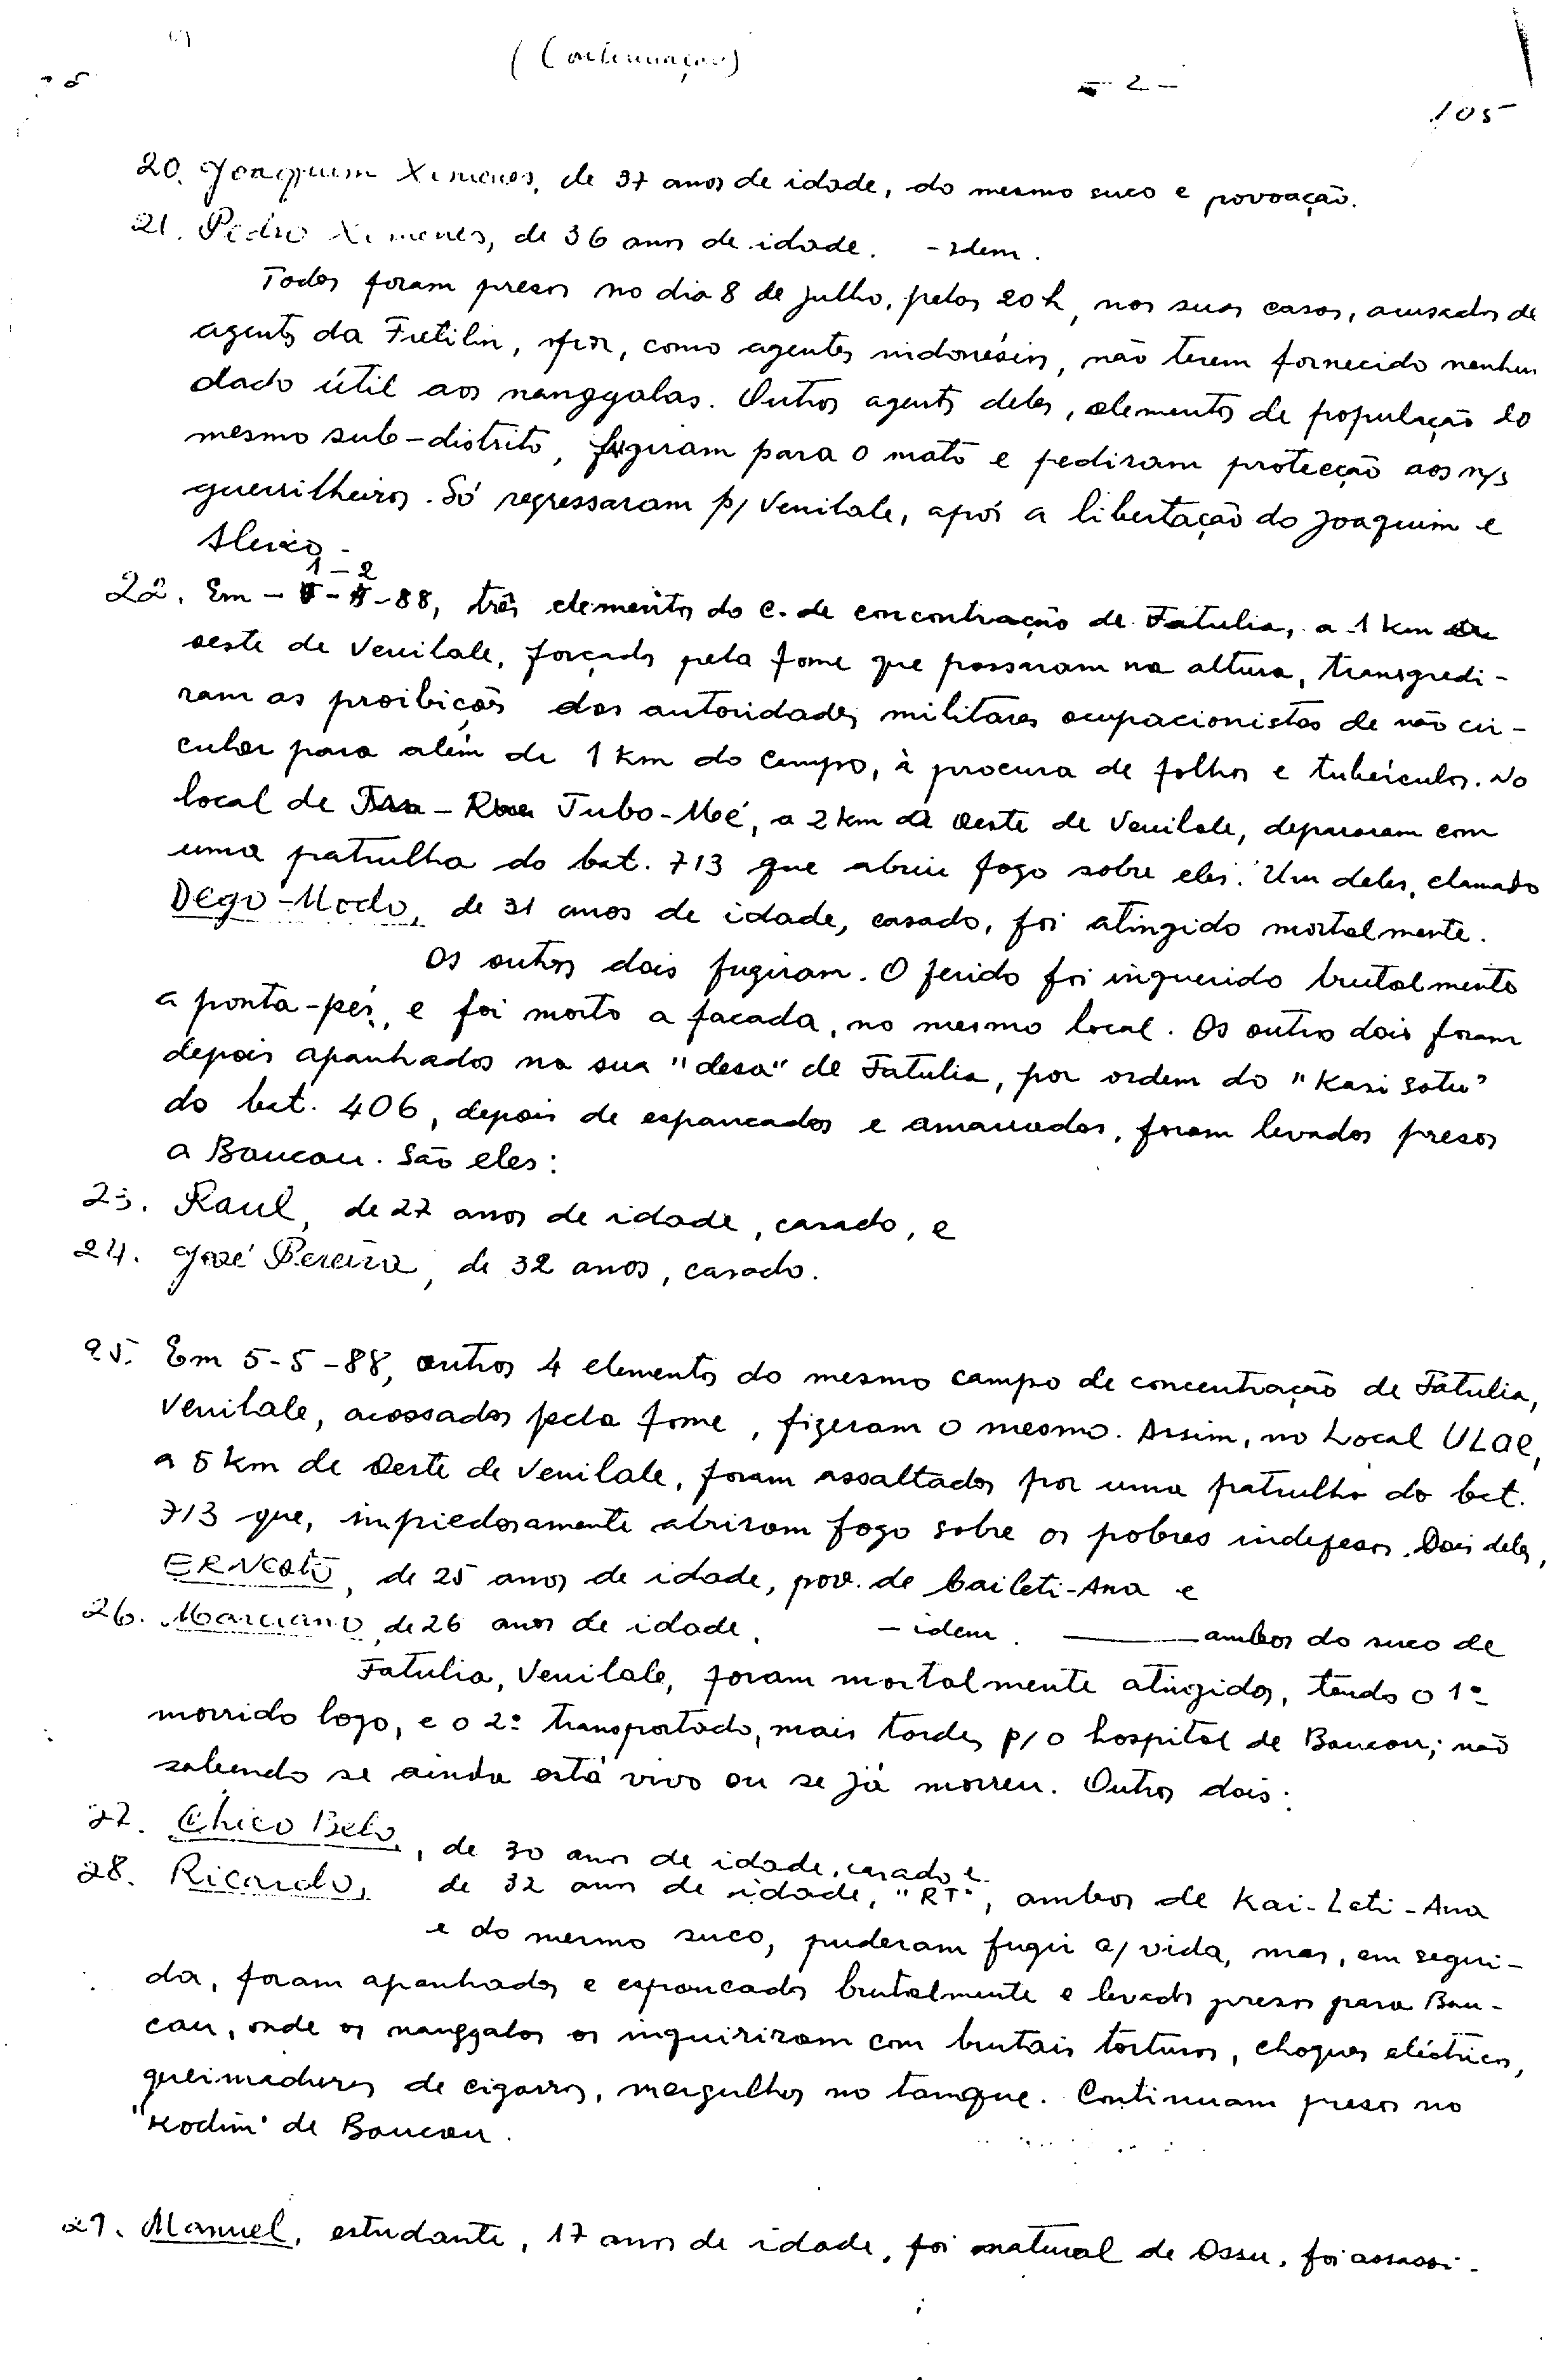 (Continuação)
- 2 -
105
20. Joaquim Ximenes, de 37 anos de idade, do mesmo suco e povoação.
21. Pedro Ximenes, de 36 anos de idade. - Idem.
Todos foram presos no dia 8 de Julho, pelas 20 h, nas suas casas, acusados de
agentes da Fretilin, por, como agentes indonésios, não terem fornecido nenhum
dado útil aos nanggalas. Outros agentes deles, elementos de população do
mesmo sub-distrito, fugiram para o mato e pediram protecção aos n/s
guerrilheiros. Só regressaram p/ Venilale, após a libertação do Joaquim e
Aleixo.
22. Em - 1-2-88, três elementos do C. de concontração de Fatulia, a 1 km
oeste de Venilale, forçados pela fome que passaram na altura, transgredi-
ram as proibições das autoridades militares ocupacionistas de não cir-
cular para além de 1 km do campo, à procura de folhas e tubérculos. No
local de Tubo-Moé, a 2 km de Oeste de Venilale, depararam com
uma patrulha do bat. 713 que abriu fogo sobre eles. Um deles, clamado
Dego-Modo, de 31 anos de idade, casado, foi atingido mortalmente.
Os outros dois fugiram. O ferido foi inquerido brutalmente
a ponta-pés, e foi morto a facada, no mesmo local. Os outros dois foram
depois apanhados na sua "desa" de Fatulia, por ordem do "Kasi Satu"
do bat. 406, depois de espancados e amarrados, foram levados presos
a Baucau. São eles:
23. Raul, de 27 anos de idade, casado, e
24. José Pereira, de 32 anos, casado.
25. Em 5-5-88, outros 4 elementos do mesmo campo de concentração de Fatulia,
Venilale, acossados pela fome, fizeram o mesmo. Assim, no Local ULAE,
a 5 km de Oeste de Venilale, foram assaltados por uma patrulha do bat.
713 que, impiedosamente abriram fogo sobre os pobres indefesos. Dois deles,
ERNESTO, de 25 anos de idade, pov. de Caileti-Ana e
26. Marciano, de 26 anos de idade. - idem. ——— ambos do suco de
Fatulia, Venilale, foram mortalmente atingidos, tendo o 1º
morrido logo, e o 2º transportado, mais tarde, p/ o hospital de Baucau; não
sabendo se ainda está vivo ou se já morreu. Outros dois:
27. Chico Belo, de 30 anos de idade, casado e
28. Ricardo, de 32 anos de idade, "RT", ambos de Kai-Leti-Ana
e do mesmo suco, puderam fugir c/ vida, mas, em segui-
da, foram apanhados e espancados brutalmente e levados presos para Bau-
cau, onde os nanggalas os inquiriram com brutais torturas, choques eléctricos,
queimaduras de cigarros, mergulhos no tanque. Continuam presos no
"Kodim" de Baucau.
29. Manuel, estudante, 17 anos de idade, foi natural de Ossu, foi assassi-